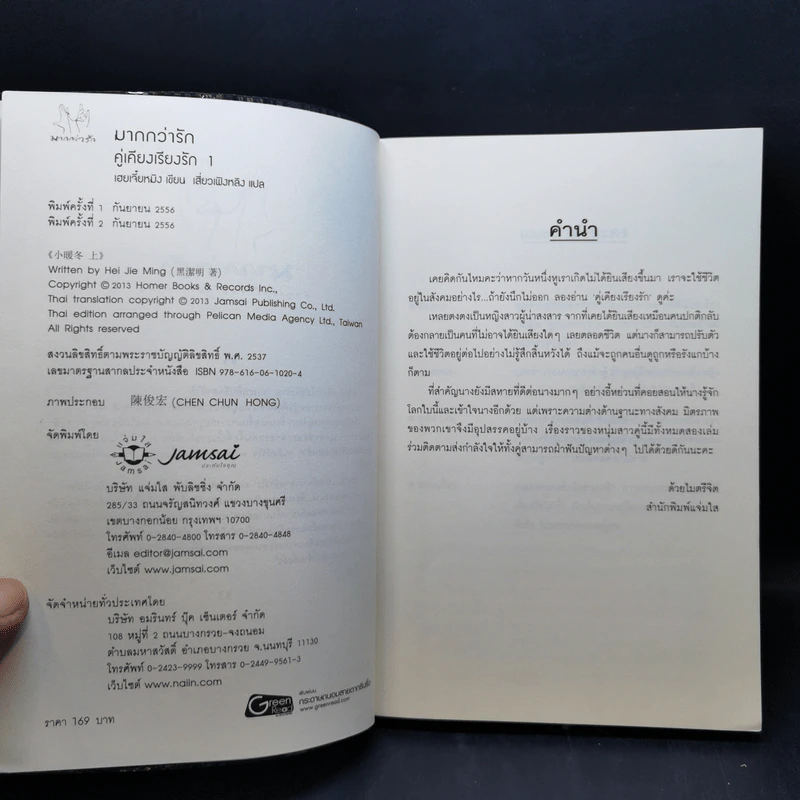 มากกว่ารัก
มากกว่ารัก
คู่เคียงเรียงรัก 1
เฮยเจี๋ยหมิง เขียน เสี่ยวเฟิงหลิง แปล
พิมพ์ครั้งที่ 1 กันยายน 2556
พิมพ์ครั้งที่ 2 กันยายน 2556
《小暖冬 上》
Written by Hei Jie Ming (黑潔明 著)
Copyright © 2013 Homer Books & Records Inc.,
Thai translation copyright © 2013 Jamsai Publishing Co., Ltd.
Thai edition arranged through Pelican Media Agency Ltd., Taiwan
All Rights reserved
สงวนลิขสิทธิ์ตามพระราชบัญญัติลิขสิทธิ์ พ.ศ. 2537
เลขมาตรฐานสากลประจำหนังสือ ISBN 978-616-06-1020-4
ภาพประกอบ 陳俊宏 (CHEN CHUN HONG)
จัดพิมพ์โดย
แจ่มใส
Jamsai
Jamsai
บริษัท แจ่มใส พับลิชชิ่ง จำกัด
285/33 ถนนจรัญสนิทวงศ์ แขวงบางขุนศรี
เขตบางกอกน้อย กรุงเทพฯ 10700
โทรศัพท์ 0-2840-4800 โทรสาร 0-2840-4848
อีเมล editor@jamsai.com
เว็บไซต์ www.jamsai.com
จัดจำหน่ายทั่วประเทศโดย
บริษัท อมรินทร์ บุ๊ค เซ็นเตอร์ จำกัด
108 หมู่ที่ 2 ถนนบางกรวย-จงถนอม
ตำบลมหาสวัสดิ์ อำเภอบางกรวย จ.นนทบุรี 11130
โทรศัพท์ 0-2423-9999 โทรสาร 0-2449-9561-3
เว็บไซต์ www.naiin.com
Green Read
พิมพ์บน
กระดาษถนอมสายตากรีนรี้ด
www.greenread.com
ราคา 169 บาท
คำนำ
เคยคิดกันไหมคะว่าหากวันหนึ่งหูเราเกิดไม่ได้ยินเสียงขึ้นมา เราจะใช้ชีวิต
อยู่ในสังคมอย่างไร...ถ้ายังนึกไม่ออก ลองอ่าน 'คู่เคียงเรียงรัก' ดูค่ะ
เหลยตงตงเป็นหญิงสาวผู้น่าสงสาร จากที่เคยได้ยินเสียงเหมือนคนปกติกลับ
ต้องกลายเป็นคนที่ไม่อาจได้ยินเสียงใดๆ เลยตลอดชีวิต แต่นางก็สามารถปรับตัว
และใช้ชีวิตอยู่ต่อไปอย่างไม่รู้สึกสิ้นหวังได้ ถึงแม้จะถูกคนอื่นดูถูกหรือรังแกบ้าง
ก็ตาม
ที่สำคัญนางยังมีสหายที่ดีต่อนางมากๆ อย่างอี้หย่วนที่คอยสอนให้นางรู้จัก
โลกใบนี้และเข้าใจนางอีกด้วย แต่เพราะความต่างด้านฐานะทางสังคม มิตรภาพ
ของพวกเขาจึงมีอุปสรรคอยู่บ้าง เรื่องราวของหนุ่มสาวคู่นี้มีทั้งหมดสองเล่ม
ร่วมติดตามส่งกำลังใจให้ทั้งคู่สามารถฝ่าฟันปัญหาต่างๆ ไปได้ด้วยดีกันนะคะ
ด้วยไมตรีจิต
สำนักพิมพ์แจ่มใส